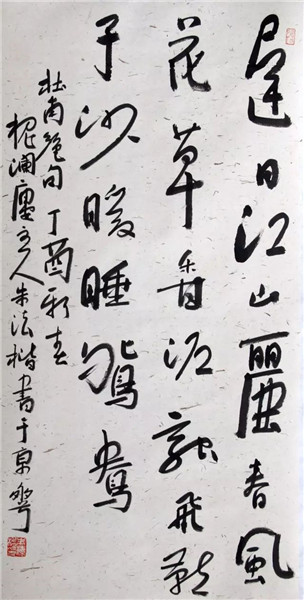 遲日江山麗春風
花草香泥融飛燕
子沙暖睡鴛鴦
杜甫絕句 丁酉新春
瀾廬主人朱法楷書于